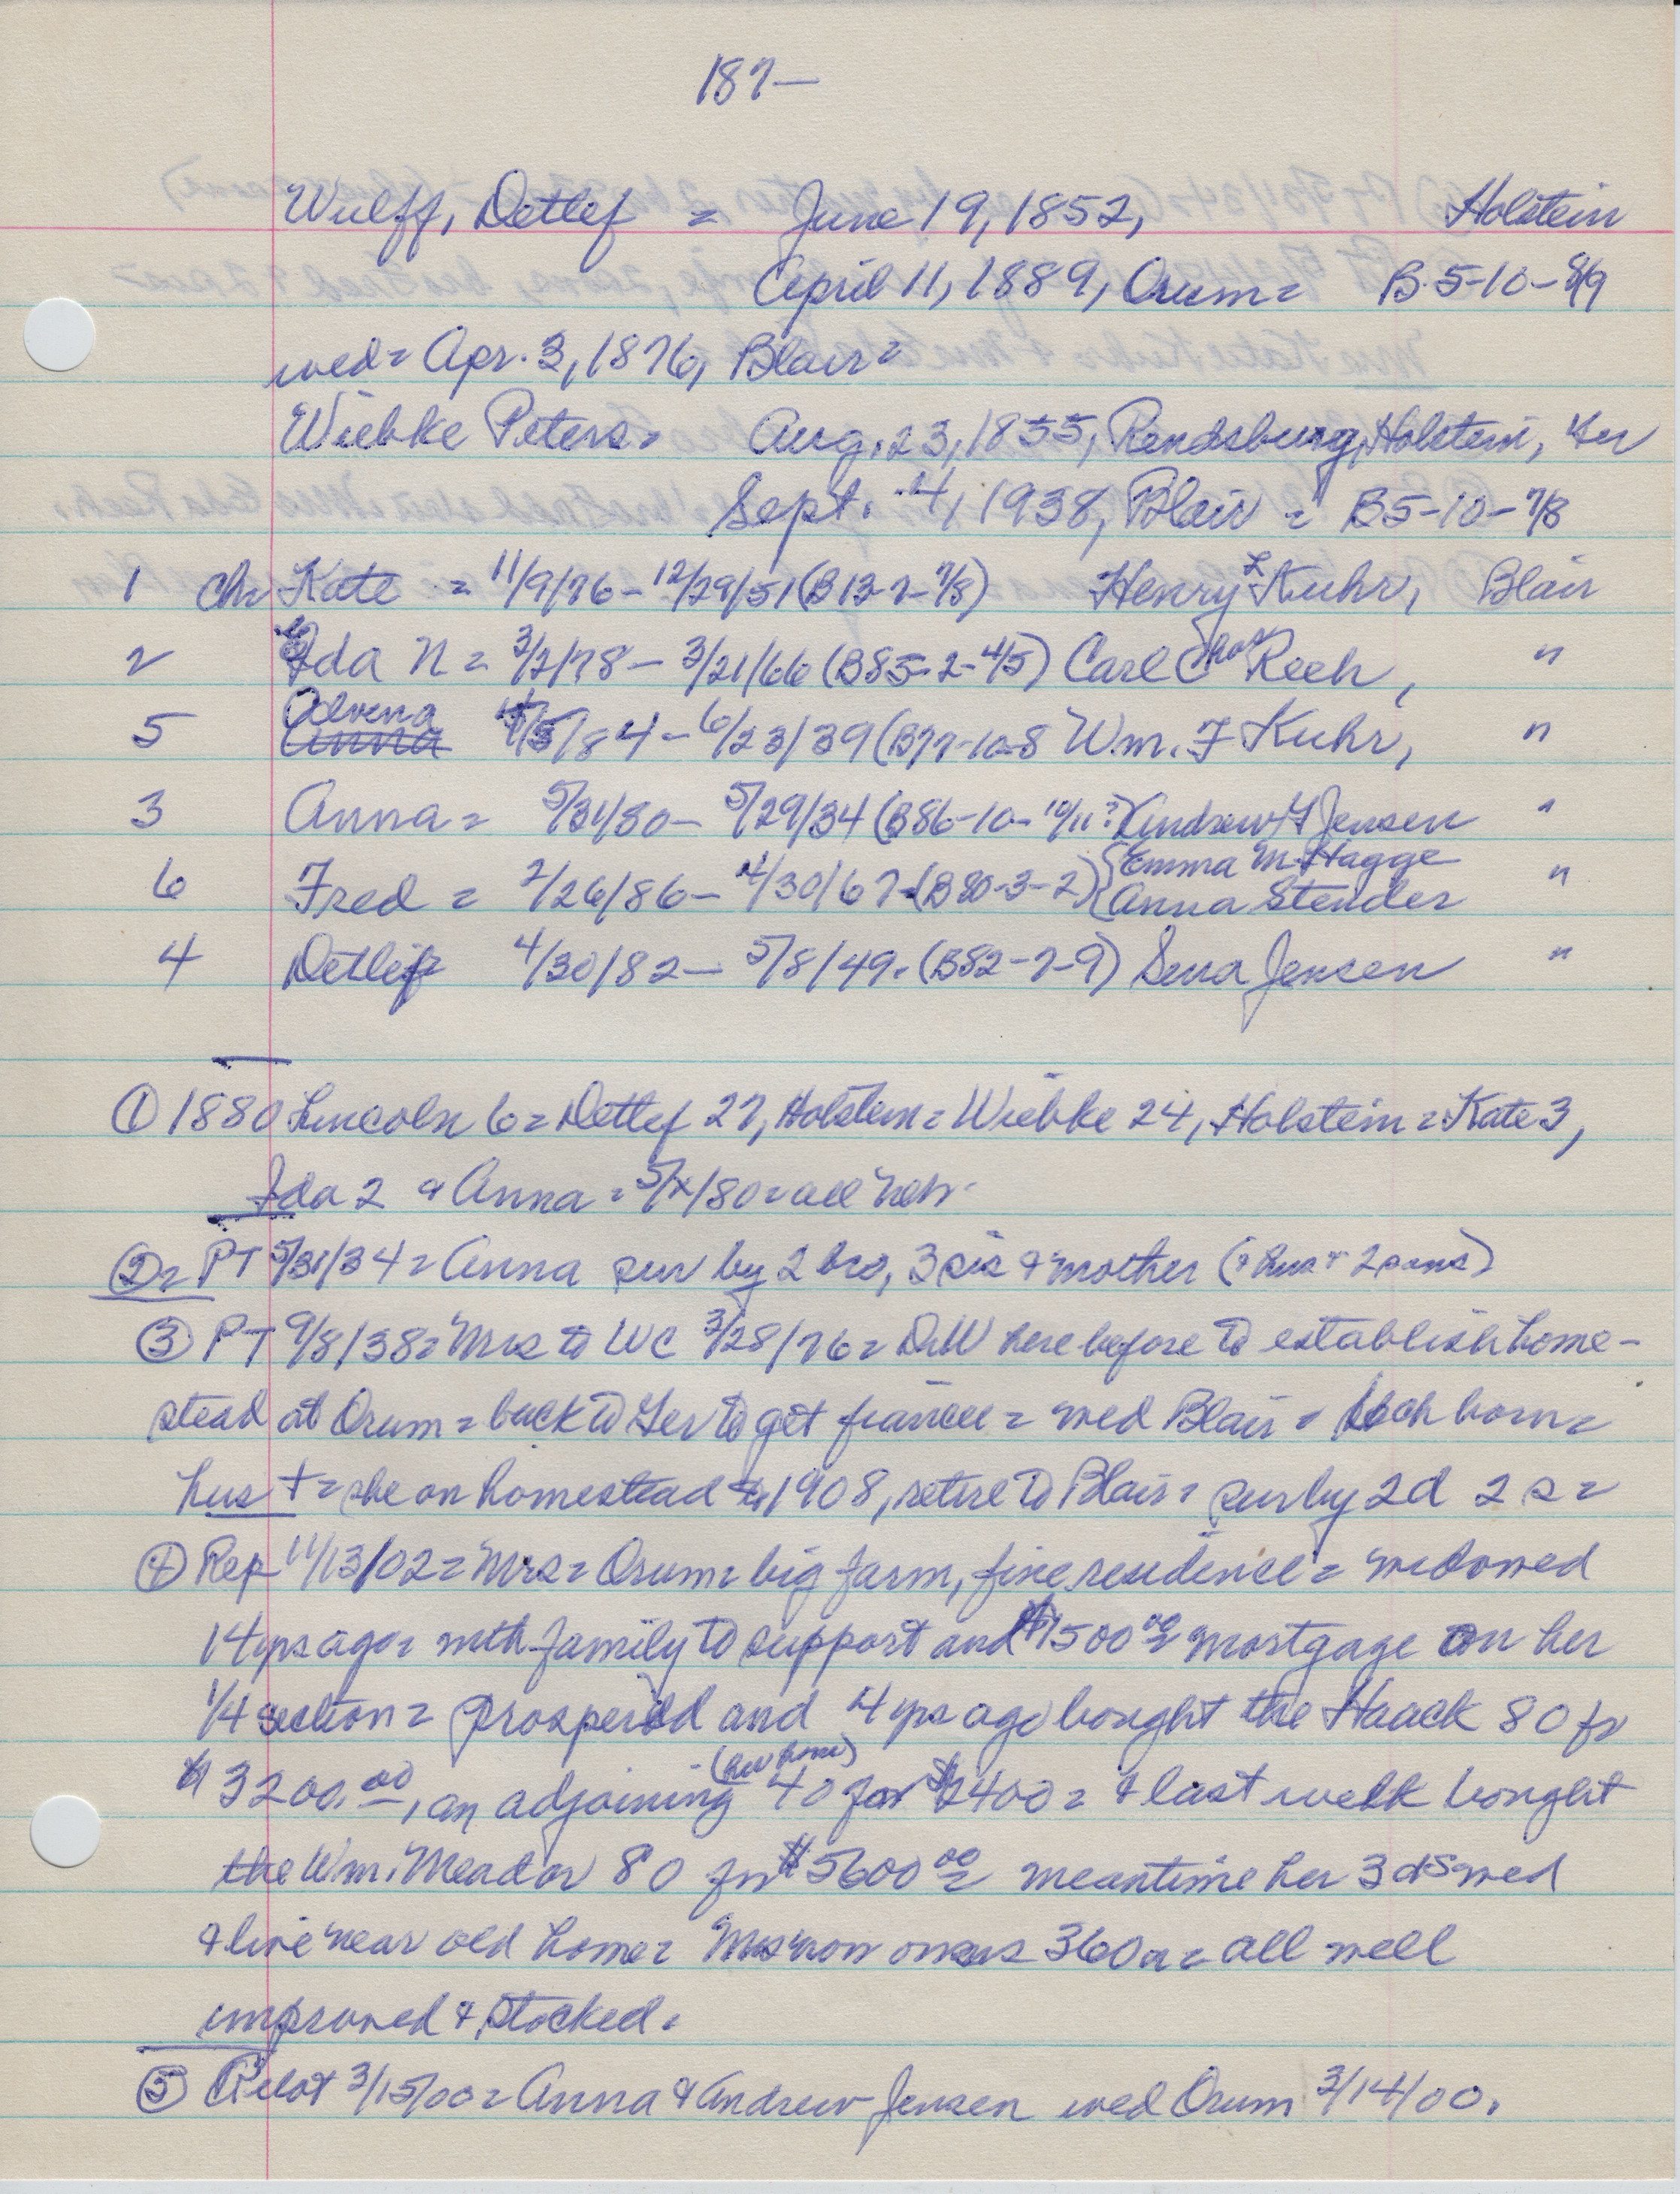 187-
Wulff, Detlef = June 19, 1852, Holstein
April 11, 1889, Orum = B-5-10-8/9
wed = Apr. 3, 1876, Blair =
Wiebke Peters = Aug. 23, 1855, Rendsburg, Holstein, Ger
Sept. 4, 1938, Blair = B5-10-7/8
1 ch = Kate = 11/9/76 - 12/29/51 (B13-7-7/8) Henry L Kuhr, Blair
2 Ida N = 3/2/78 - 3/21/66 (B85-2-4/5) Carl Chas Reeh, "
5 Alvena Anna /5/84 - 6/23/39 (B77-10-8 Wm. F Kuhr, "
3 Anna = 5/31/80 - 5/29/34 (B86-10-10/11?) Andrew F Jensen "
6 Fred = 2/26/86 - 4/30/67 - (B80-3-2) { Emma M Hagge Anna Stender "
4 Detlef 4/30/82 - 5/8/49. (B52-7-9) Sena Jensen "
① 1880 Lincoln 6 = Detlef 27, Holstein = Wiebke 24, Holstein = Kate 3,
Ida 2 & Anna = 5/x/80 = all Neb.
② = PT 5/31/34 = Anna sur by 2 bro, 3 sis & mother (& hus & 2 sons)
③ PT 9/8/38 = Mrs to WC 3/28/76 = DW here before to establish home-
stead at Orum = back to Ger to get fiancee = wed Blair = 6 ch born =
hus † = she on homestead to 1908, retire to Blair = sur by 2 d 2 s =
④ Rep 11/13/02 = Mrs = Orum = big farm, fine residense = widowed
14 yrs ago = with family to support and $1500.00 = mortgage on her
1/4 section = prospered and 4 yrs ago bought the Haack 80 fr
$3200.00, an adjoining (her home) 40 for $2400 = & last week bought
the Wm. Meador 80 for $5600.00 = meantime her 3 ds wed
& live near old home = Mrs now owns 360 a = all well
improved & stocked.
⑤ Pilot 3/15/00 = Anna & Andrew Jensen wed Orum 3/14/00.